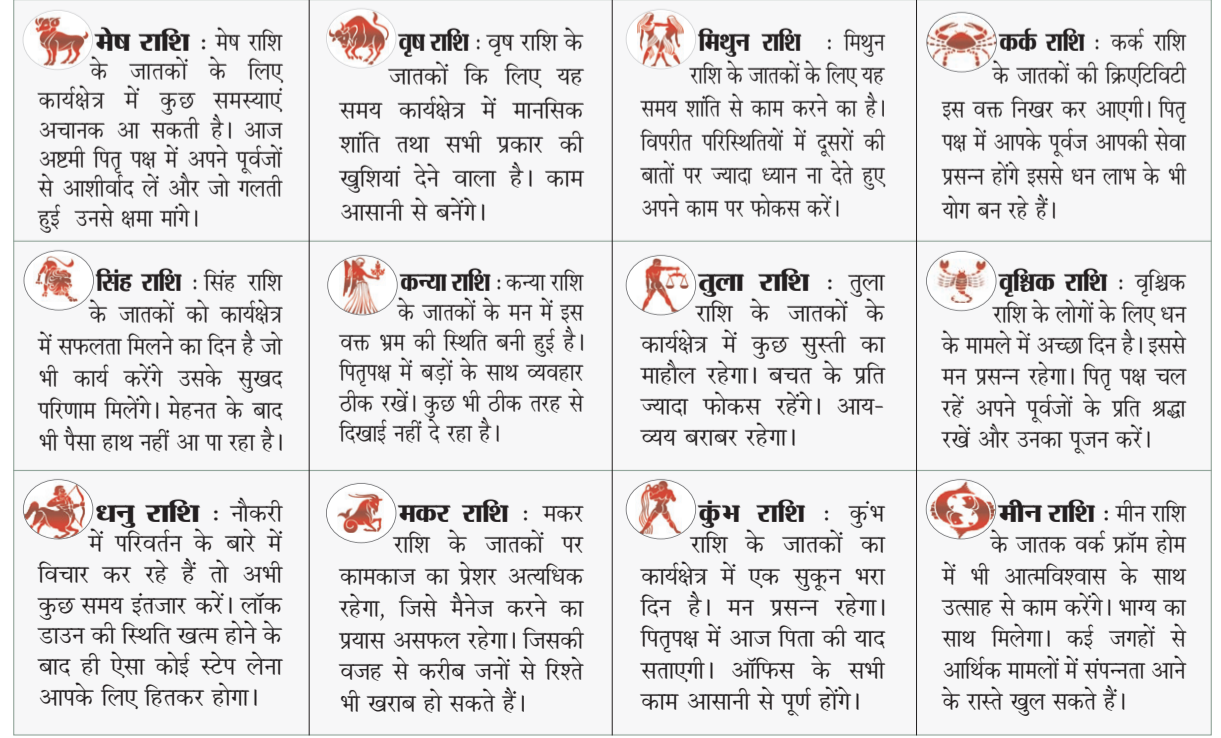 मेष राशि : मेष राशि
के जातकों के लिए
कार्यक्षेत्र में कुछ समस्याएं
अचानक आ सकती है। आज
अष्टमी पितृ पक्ष में अपने पूर्वजों
से आशीर्वाद लें और जो गलती
हुई उनसे क्षमा मांगे।
वृष राशि : वृष राशि के
जातकों कि लिए यह
समय कार्यक्षेत्र में मानसिक
शांति तथा सभी प्रकार की
खुशियां देने वाला है। काम
आसानी से बनेंगे।
मिथुन राशि : मिथुन
राशि के जातकों के लिए यह
समय शांति से काम करने का है।
विपरीत परिस्थितियों में दूसरों की
बातों पर ज्यादा ध्यान ना देते हुए
अपने काम पर फोकस करें।
कर्क राशि : कर्क राशि
के जातकों की क्रिएटिविटी
इस वक्त निखर कर आएगी। पितृ
पक्ष में आपके पूर्वज आपकी सेवा
प्रसन्न होंगे इससे धन लाभ के भी
योग बन रहे हैं।
सिंह राशि : सिंह राशि
के जातकों को कार्यक्षेत्र
में सफलता मिलने का दिन है जो
भी कार्य करेंगे उसके सुखद
परिणाम मिलेंगे। मेहनत के बाद
भी पैसा हाथ नहीं आ पा रहा है।
कन्या राशि : कन्या राशि
के जातकों के मन में इस
वक्त भ्रम की स्थिति बनी हुई है।
पितृपक्ष में बड़ों के साथ व्यवहार
ठीक रखें। कुछ भी ठीक तरह से
दिखाई नहीं दे रहा है।
तुला राशि : तुला
राशि के जातकों के
कार्यक्षेत्र में कुछ सुस्ती का
माहौल रहेगा। बचत के प्रति
ज्यादा फोकस रहेंगे। आय-
व्यय बराबर रहेगा।
वृश्चिक राशि : वृश्चिक
राशि के लोगों के लिए धन
के मामले में अच्छा दिन है। इससे
मन प्रसन्न रहेगा। पितृ पक्ष चल
रहें अपने पूर्वजों के प्रति श्रद्धा
रखें और उनका पूजन करें।
धनु राशि : नौकरी
में परिवर्तन के बारे में
विचार कर रहे हैं तो अभी
कुछ समय इंतजार करें। लॉक
डाउन की स्थिति खत्म होने के
बाद ही ऐसा कोई स्टेप लेना
आपके लिए हितकर होगा।
मकर राशि : मकर
राशि के जातकों पर
कामकाज का प्रेशर अत्यधिक
रहेगा, जिसे मैनेज करने का
प्रयास असफल रहेगा। जिसकी
वजह से करीब जनों से रिश्ते
भी खराब हो सकते हैं।
कुंभ राशि : कुंभ
राशि के जातकों का
कार्यक्षेत्र में एक सुकून भरा
दिन है। मन प्रसन्न रहेगा।
पितृपक्ष में आज पिता की याद
सताएगी। ऑफिस के सभी
काम आसानी से पूर्ण होंगे।
मीन राशि : मीन राशि
के जातक वर्क फ्रॉम होम
में भी आत्मविश्वास के साथ
उत्साह से काम करेंगे। भाग्य का
साथ मिलेगा। कई जगहों से
आर्थिक मामलों में संपन्नता आने
के रास्ते खुल सकते हैं।